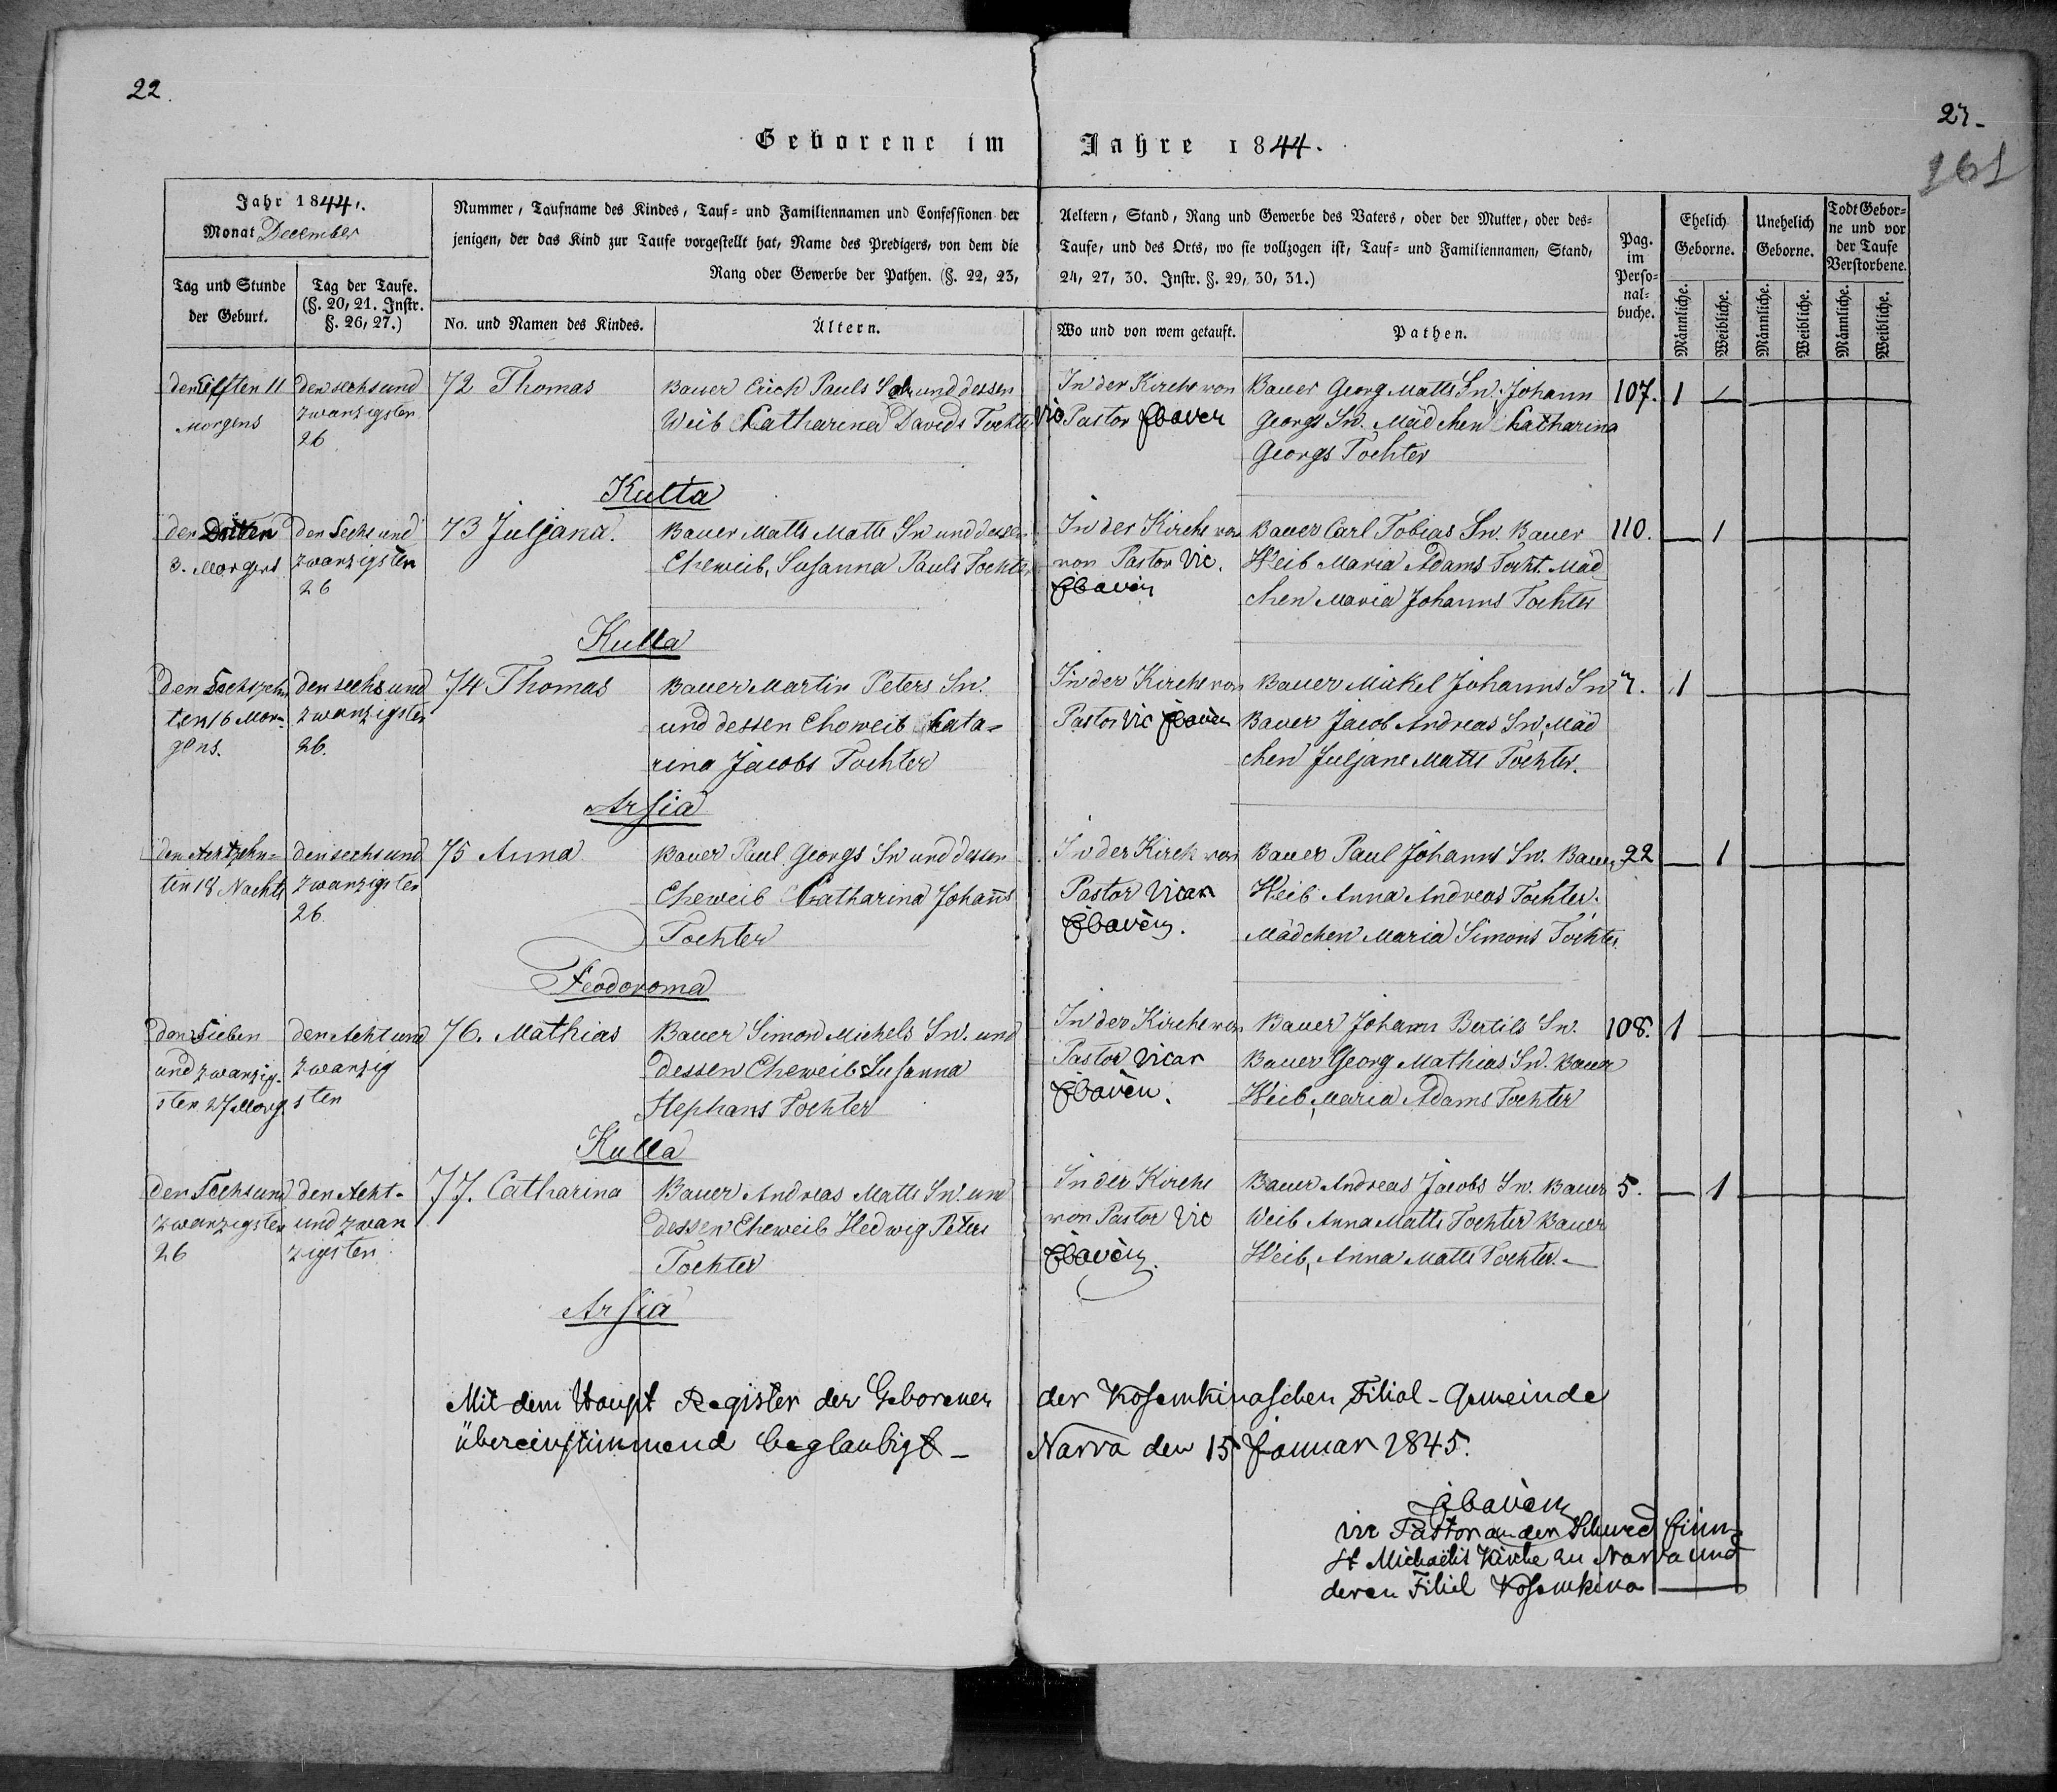 22.
23.
161
Geborene im Jahre 1844.
Jahr 1844.
Monat December
Nummer, Taufname des Kindes, Tauf- und Familiennamen und Confessionen der Aeltern, Stand, Rang und Gewerbe des Vaters, oder der Mutter, oder des-
jenigen, der das Kind zur Taufe vorgestellt hat, Name des Predigers, von dem die Taufe, und des Orts, wo sie vollzogen ist, Tauf- und Familiennamen, Stand,
Rang oder Gewerbe der Pathen. (§. 22, 23, 24, 27, 30. Instr. §. 29, 30, 31.)
Tag und Stunde
der Geburt.
Tag der Taufe.
(§. 20, 21. Instr.
§. 26, 27.)
No. und Namen des Kindes.
Ältern.
Wo und von wem getauft.
Pathen.
Pag.
im
Perso-
nal-
buche.
Ehelich
Geborne.
Unehelich
Geborne.
Todt Gebor-
ne und vor
der Taufe
Verstorbene.
Männliche.
Weibliche.
Männliche.
Weibliche.
Männliche.
Weibliche.
den Elften 11
Morgens
den sechs und
zwanzigsten
26
72 Thomas
Bauer Erich Pauls Sohn und dessen
Weib Catharina Davids Tochter
In der Kirche von
Vic Pastor
Bauer Georg Matts Sn. Johann
Georgs Sn. Mädchen Catharina
Georgs Tochter
107.
1
Kulla
den Dritten
3. Morgens
den Sechs und
zwanzigsten
26
73 Juljana.
Bauer Matts Matts Sn und dessen
Eheweib, Susanna Pauls Tochter
In der Kirche von
von Pastor Vic.
Bauer Carl Tobias Sn. Bauer
Weib Maria Adams Tocht. Mäd
chen Maria Johanns Tochter
110.
1
Kulla
den Sechszehn
ten 16 Mor-
gens.
den sechs und
zwanzigsten
26.
74 Thomas
Bauer Martin Peters Sn.
und dessen Eheweib Cata-
rina Jacobs Tochter
In der Kirche von
Pastor Vic
Bauer Mickel Johanns Sn
Bauer Jacob Andreas Sn. Mäd
chen Juljane Matts Tochter.
7.
1
Arsia
den Achtzehn-
ten 18 Nachts
den sechs und
zwanzigsten
26
75 Anna
Bauer Paul Georgs Sn und dessen
Eheweib Catharina Johanns
Tochter
In der Kirch von
Pastor Vicar
Bauer Paul Johanns Sn. Bauer
Weib Anna Andreas Tochter.
Mädchen Maria Simons Tochter.
22
1
Feodoroma
den Sieben
und zwanzig-
sten 27 Morg
den Acht und
zwanzig
sten
76. Mathias
Bauer Simon Michels Sn. und
dessen Eheweib Susanna
Stephans Tochter
In der Kirche von
Pastor Vicar
Bauer Johann Bertils Sn.
Bauer Georg Mathias Sn. Bauer
Weib, Maria Adams Tochter
108.
1
Kulla
den Sechs und
zwanzigsten
26
den Acht-
und zwan
zigsten
77. Catharina
Bauer Andreas Matts Sn. und
dessen Eheweib Hedwig Peters
Tochter
In der Kirche
von Pastor Vic
Bauer Andreas Jacobs Sn. Bauer
Weib Anna Matts Tochter Bauer
Weib, Anna Matts Tochter.
5.
1
Arsia
Mit dem Haupt Register der Geborenen der Kosemkinaschen Filial-Gemeinde
übereinstimmend beglaubigt - Narva den 15 Januar 1845.
vic Pastor an der Schwed finn.
St Michaelis Kirche zu Narva und
deren Filial Kosemkina